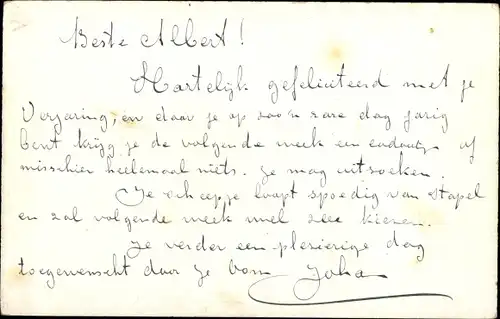 Beste Albert!
Hartelijk gefeliciteerd met je
Verjaring, en daar je op zoo'n rare dag jarig
bent krijg je de volgende week een cadeautje of
misschien heelemaal niets. Je mag uitzoeken.
Je scheepje loopt spoedig van stapel
en zal volgende week wel zee kiezen.
Je verder een plezierige dag
toegewenscht door je oom Joha